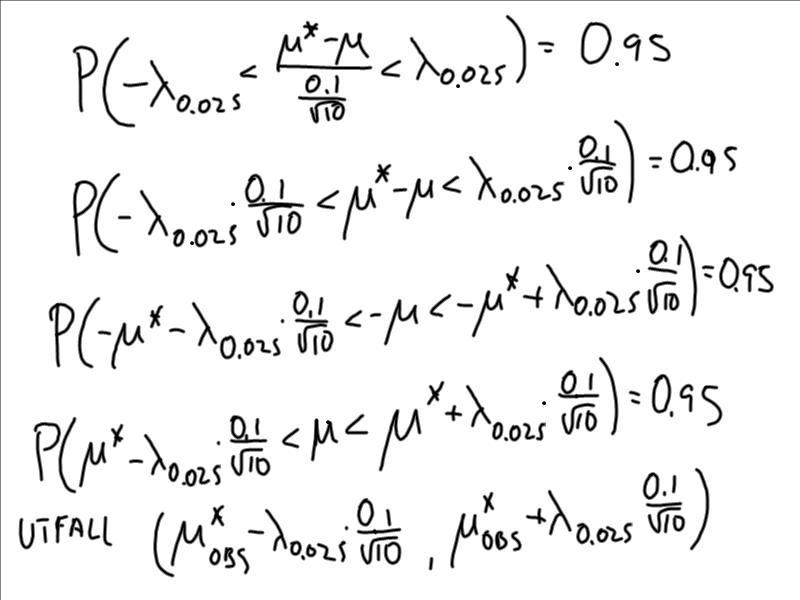 P(-λ_0.025 < (μ* - μ)/(0.1/√10) < λ_0.025) = 0.95
P(-λ_0.025 · 0.1/√10 < μ* - μ < λ_0.025 · 0.1/√10) = 0.95
P(-μ* - λ_0.025 · 0.1/√10 < -μ < -μ* + λ_0.025 · 0.1/√10) = 0.95
P(μ* - λ_0.025 · 0.1/√10 < μ < μ* + λ_0.025 · 0.1/√10) = 0.95
UTFALL (μ*_OBS - λ_0.025 · 0.1/√10 , μ*_OBS + λ_0.025 0.1/√10)